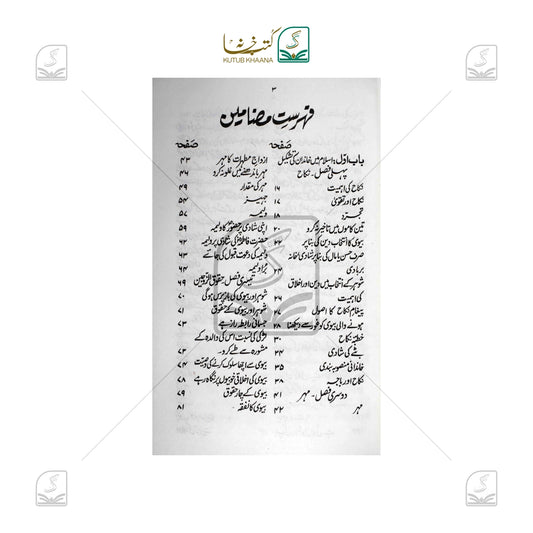 کتب خانہ
KUTUB KHAANA
۳
فہرست مضامین
صفحہ
باب اوّل: اسلام میں خاندان کی تشکیل
پہلی فصل - نکاح
نکاح کی اہمیت ۱۶
نکاح اور تقویٰ ۱۷
تجرد ۱۸
تین کاموں میں تاخیر نہ کرو ۲۰
بیوی کا انتخاب دین کی بنا پر ۲۲
صرف حسن یا مال کی بنا پر شادی خانہ
بربادی ۲۴
شوہر کے انتخاب میں دین اور اخلاق
کی اہمیت ۲۶
پیغام نکاح کا اصول ۲۷
ہونے والی بیوی کو غور سے دیکھنا ۲۸
خطبۂ نکاح ۳۰
بٹے کی شادی ۳۴
خاندانی منصوبہ بندی ۳۵
نکاح اور باجہ ۳۸
دوسری فصل - مہر ۴۱
مہر ۴۲
صفحہ
ازواج مطہرات کا مہر ۴۳
مہر باندھنے میں غلو نہ کرو ۴۶
مہر کی مقدار ۴۹
جہیز ۵۴
ولیمہ ۵۷
اپنی شادی پر حضورؐ کا ولیمہ ۵۹
حضرت فاطمہؓ کی شادی پر ولیمہ ۶۲
ولیمہ کی دعوت قبول کی جائے ۶۳
بُرا ولیمہ ۶۴
تیسری فصل - حقوق الزوجین ۶۹
شوہر اور بیوی کی باز پرس ہوگی ۷۰
شوہر اور بیوی کے حقوق ۷۱
جسمانی رابطہ راز ہے ۷۳
لڑکی کی نسبت اس کی والدہ کے
مشورہ سے طے کرو۔ ۷۲
بیوی سے اچھا سلوک کرنے کی وصیت ۷۴
بیوی کی اخلاقی خوبیوں پر نگاہ رہے ۷۸
بیوی کے چار حقوق ۷۹
بیوی کا نفقہ ۸۱